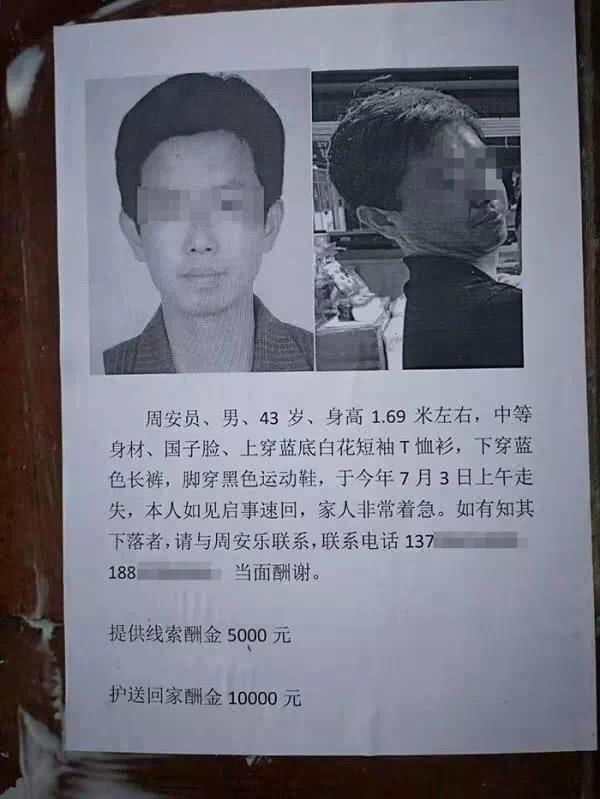 周安员、男、43 岁、身高 1.69 米左右，中等
身材、国子脸、上穿蓝底白花短袖 T 恤衫，下穿蓝
色长裤，脚穿黑色运动鞋，于今年 7 月 3 日上午走
失，本人如见启事速回，家人非常着急。如有知其
下落者，请与周安乐联系，联系电话 137
188 当面酬谢。
提供线索酬金 5000 元
护送回家酬金 10000 元